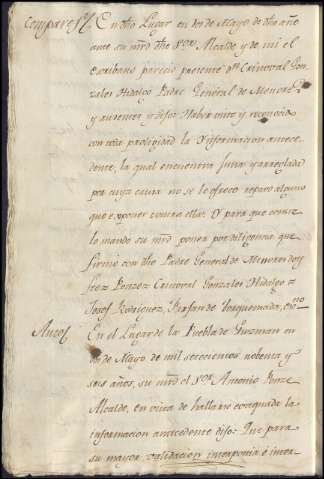 Comparesa. En dho Lugar en dos de Mayo de dho año
ante su mrd dho Sor. Alcalde y de mi el
escribano parecio presente Dn. Cristoval Gon
zales Hidalgo Padre General de Menores
y ausentes y dijo: Haber visto y reconocido
con toda prolijidad la Ynformacion antece
dente, la qual encuentra justa y arreglada
por cuya causa no se le ofrece reparo alguno
que exponer contra ella: Y para que conste
lo mando su mrd poner por diligencia que
firmo con dho Padre General de Menores doy
fee= Ponze= Cristoval Gonzales Hidalgo =
Josef Rodriguez, Torquemada, esno.
Autos En el Lugar de la Puebla de Guzman en
dos de Mayo de mil setecientos nobenta y
seis años, su mrd el Sor. Antonio Ponze
Alcalde, en vista de hallarse evaquada la
informacion antecedente dijo: Que para
su mayor validacion interponia é inter